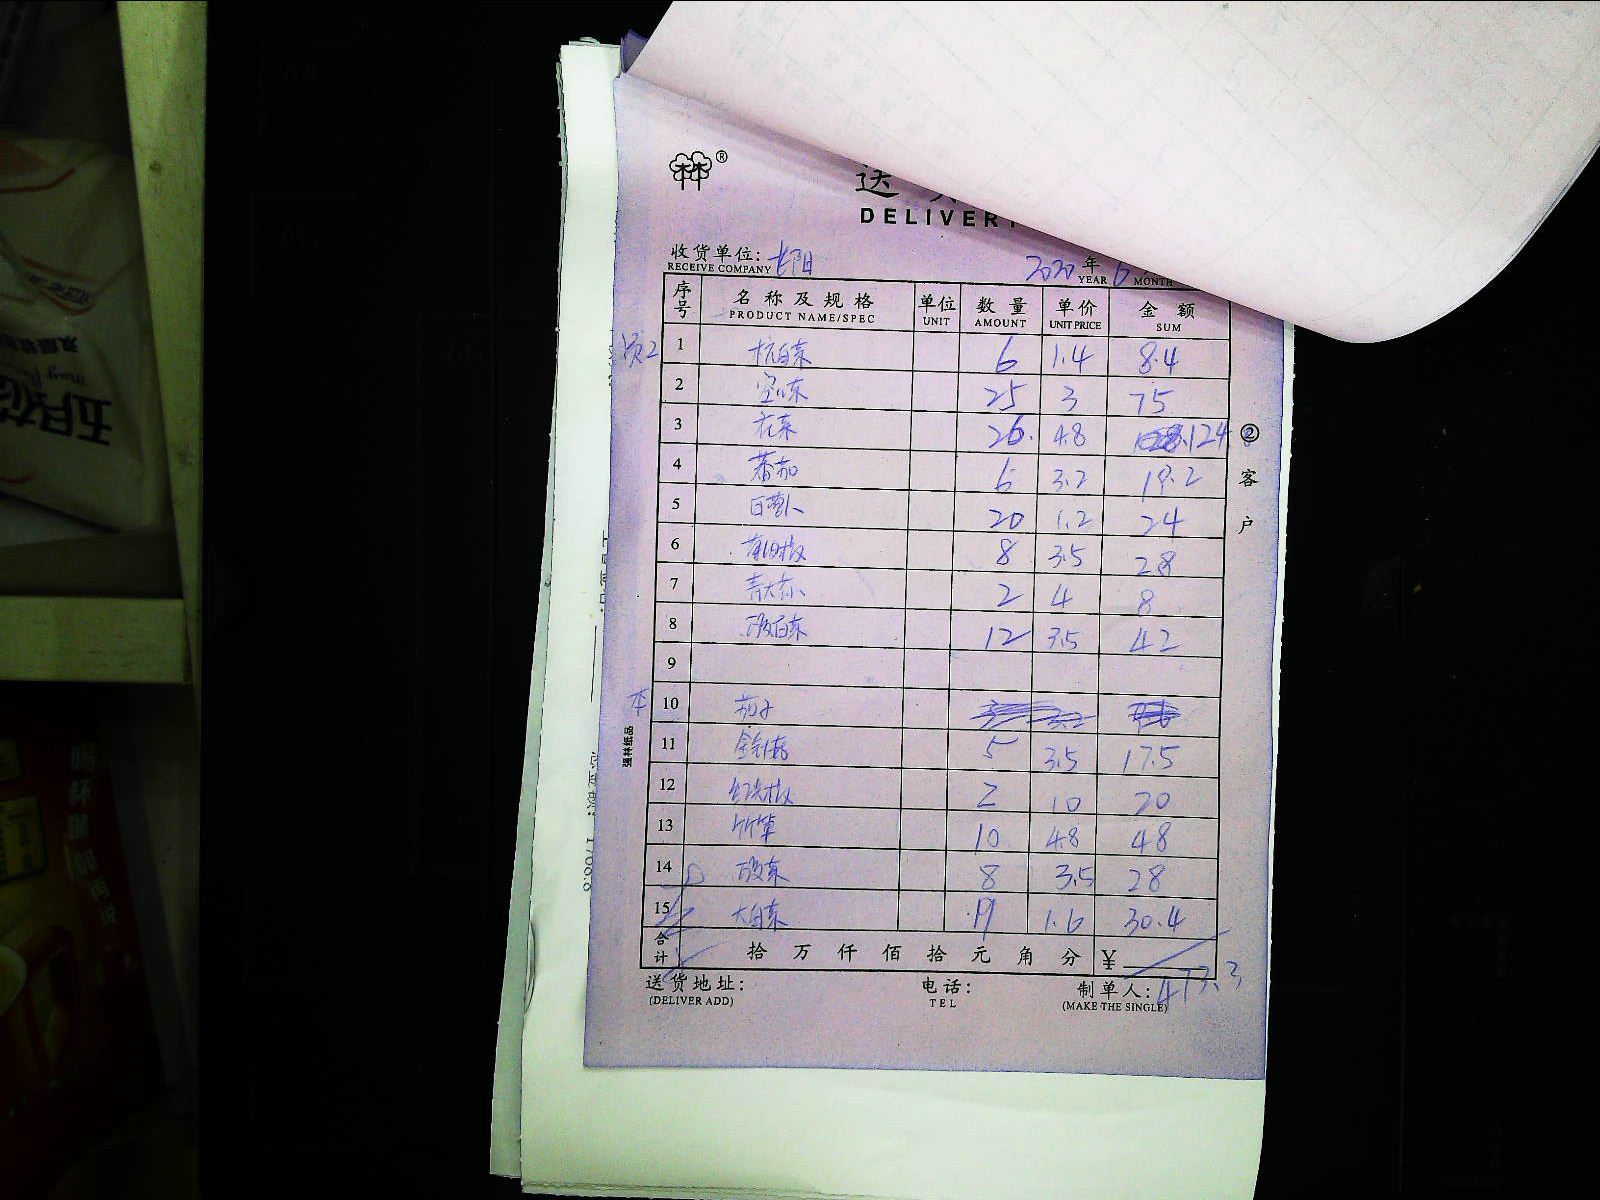 林®
送
DELIVERY
收货单位: 长阳 2020 年 6
RECEIVE COMPANY YEAR MONTH
序号 名称及规格 单位 数量 单价 金额
PRODUCT NAME/SPEC UNIT AMOUNT UNIT PRICE SUM
1 杭白菜 6 1.4 8.4
2 空心菜 25 3 75
3 花菜 26. 4.8 124
4 蕃茄 6 3.2 19.2
5 白萝卜 20 1.2 24
6 8 3.5 28
7 2 4 8
8 白菜 12 3.5 42
9
本 10 茄子
11 金针菇 5 3.5 17.5
12 红尖椒 2 10 20
13 竹笋 10 4.8 48
14 8 3.5 28
15 大白菜 19 1.6 30.4
合计 拾 万 仟 佰 拾 元 角 分 ¥ 473.3
送货地址: 电话: 制单人:
(DELIVER ADD) TEL (MAKE THE SINGLE)
② 客户
强林纸品
五月花